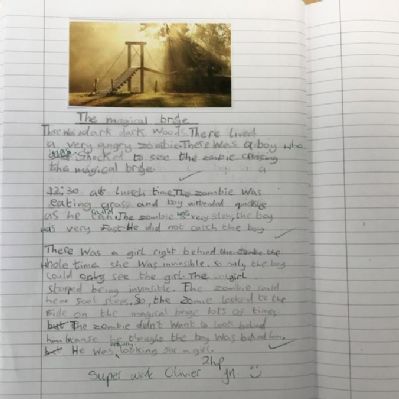 The magical brige
There was dark dark woods. There lived
a very angry zombie. There was a boy who
was shocked to see the zombie crossing
the magical brige
12:30 at lunch time The zombie was
eating grass and boy quickly
as he can. The zombie was very slow, the boy
was very fast He did not catch the boy
There was a girl right behind the zombie the
whole time she was invisible. So only the boy
could only see the girl. The girl
stoped being invisible. The zombie could
hear So, the zombie looked to the
side on the magical brige lots of times
but The zombie didn't want to look behind
him because he thought the boy was behind him.
but He was looking for a girl.
2hp
Super work Olivier